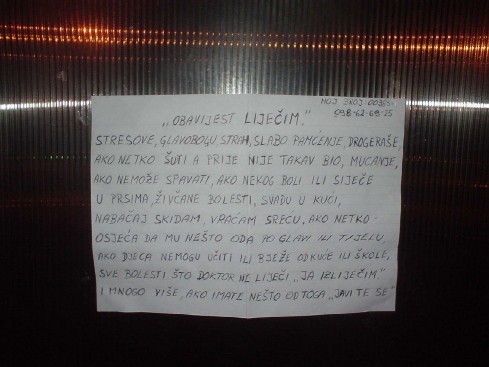 MOJ BROJ-00385-
098-62-69-25
„OBAVIJEST LIJEČIM."
STRESOVE, GLAVOBOLJU, STRAH, SLABO PAMĆENJE, DROGERAŠE,
AKO NETKO ŠUTI A PRIJE NIJE TAKAV BIO, MUCANJE,
AKO NEMOŽE SPAVATI, AKO NEKOG BOLI ILI SIJEČE
U PRSIMA, ŽIVČANE BOLESTI, SVAĐU U KUĆI,
NABAČAJ SKIDAM, VRAĆAM SREĆU, AKO NETKO-
OSJEĆA DA MU NEŠTO ODA PO GLAVI ILI TIJELU,
AKO DJECA NEMOGU UČITI ILI BJEŽE OD KUĆE ILI ŠKOLE,
SVE BOLESTI ŠTO DOKTOR NE LIJEČI „JA IZLIJEČIM"
I MNOGO VIŠE, AKO IMATE NEŠTO OD TOGA „JAVITE SE"